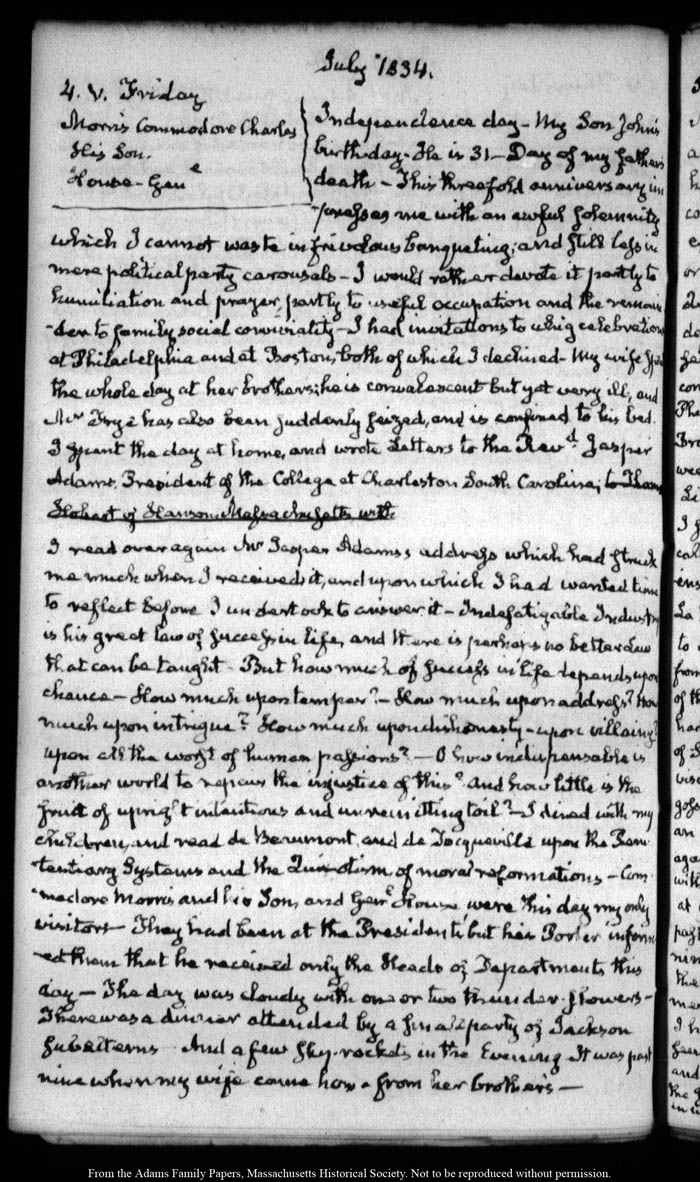 July 1834.
4. V. Friday
Morris Commodore Charles
His Son.
House - Genl
Independence day - My Son John's
birth-day - He is 31 - Day of my father's
death - This threefold anniversary im
presses me with an awful solemnity
which I cannot waste in frivolous banqueting; and still less in
mere political party carousals - I would rather devote it partly to
humiliation and prayer, partly to useful occupation and the remain
-der to family social conviviality - I had invitations to whig celebrations
at Philadelphia and at Boston, both of which I declined - My wife
the whole day at her brother's; he is convalescent but yet very ill, and
Mr Frye has also been suddenly seized, and is confined to his bed.
I spent the day at home, and wrote Letters to the Revd. Jasper
Adams, President of the College at Charleston South Carolina; to
Hobart of Hanson, Massachusetts with
I read over again Mr Jasper Adams's address which had struck
me much when I received it, and upon which I had wanted time
to reflect before I undertook to answer it - Indefatigable Industry
is his great law of success in life, and there is perhaps no better law
that can be taught - But how much of success in life depends upon
chance - How much upon temper? - How much upon address? How
much upon intrigue? How much upon dishonesty - upon villainy?
upon all the worst of human passions? - O how indispensable is
another world to repair the injustice of this? and how little is the
fruit of upright intentions and unremitting toil? - I dined with my
children, and read de Beaumont and de Tocqueville upon the Peni-
tentiary Systems and the Quixotism of moral reformations - Com-
modore Morris and his Son, and Genl House were this day my only
visitors - They had been at the President's but his Porter inform
-ed them that he received only the Heads of Departments this
day - The day was cloudy with one or two thunder-showers -
There was a dinner attended by a small party of Jackson
subalterns. And a few sky-rockets in the Evening. It was past
nine when my wife came home from her brother's -
From the Adams Family Papers, Massachusetts Historical Society. Not to be reproduced without permission.